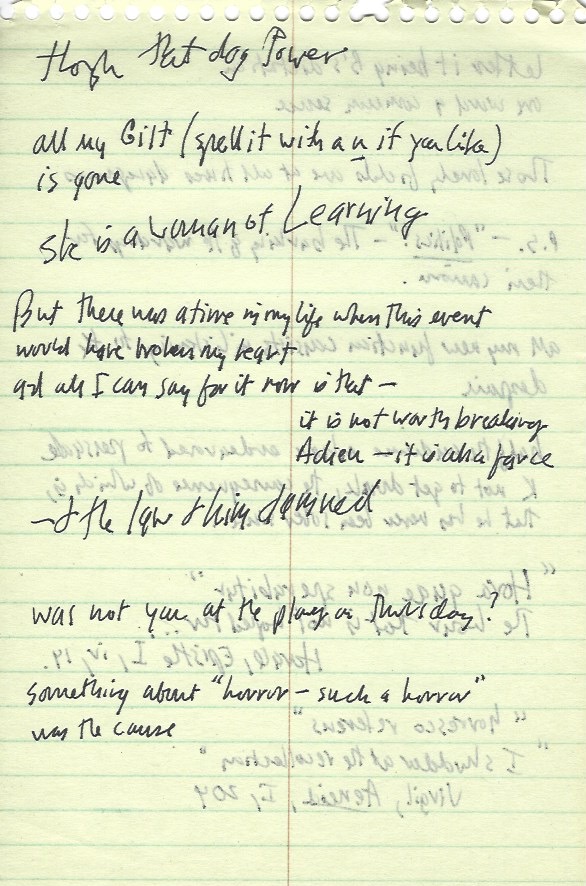 that dog Power
all my Gilt (spell it with a u if you like)
is gone
she is a woman of Learning
But there was a time in my life when this event
would have broken my heart
and all I can say for it now is that —
it is not worth breaking
Adieu — it is all a farce
— & the law thing damned
was not you at the play on Thursday?
something about "horror — such a horror"
was the cause